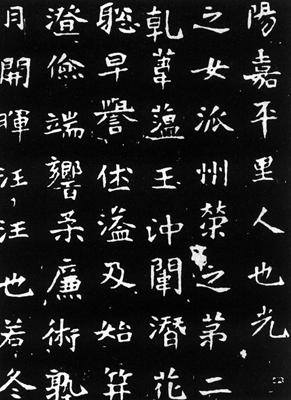 陽嘉平里人也光
之女派州荣之第二
乹葦蕴玉冲闡潛花
聡早譽伏溢及始笄
澄儉端響柔廉術熟
月開暉汪汪也若冬